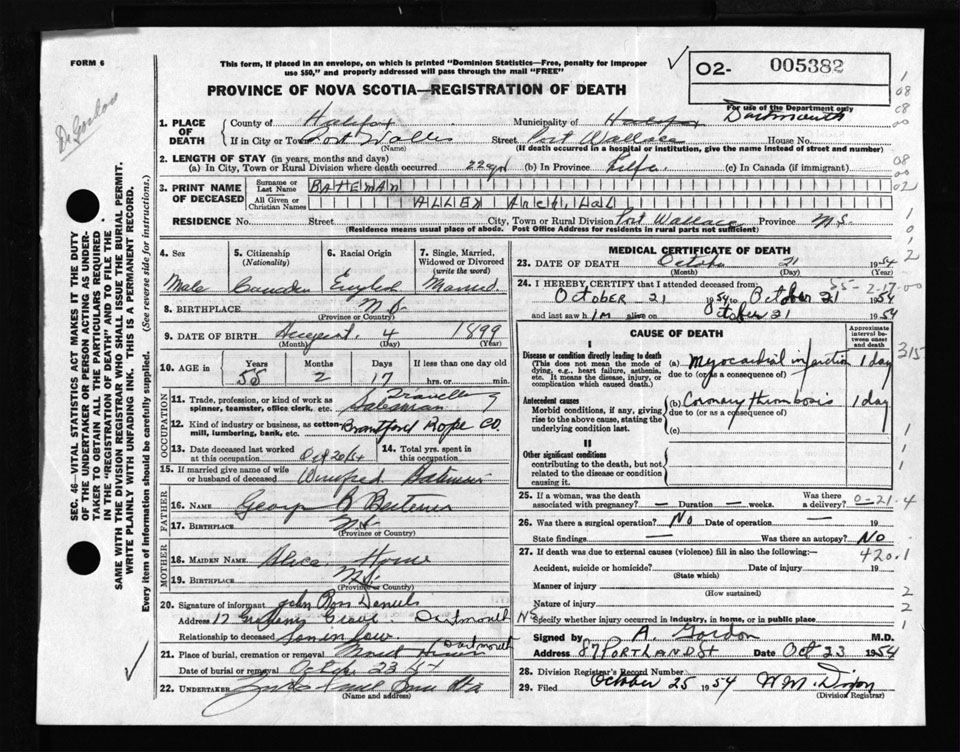 FORM 6
This form, if placed in an envelope, on which is printed "Dominion Statistics—Free, penalty for improper
use $50," and properly addressed will pass through the mail "FREE"
02- 005382
For use of the Department only
PROVINCE OF NOVA SCOTIA—REGISTRATION OF DEATH
Dr Gordon
1. PLACE OF DEATH
County of Halifax Municipality of Halifax Dartmouth
If in City or Town Port Wallis Street Port Wallace House No.
(Name) (If death occurred in a hospital or institution, give the name instead of street and number)
2. LENGTH OF STAY (in years, months and days)
(a) In City, Town or Rural Division where death occurred 22 yrs (b) In Province Life (c) In Canada (if immigrant)
3. PRINT NAME OF DECEASED
Surname or Last Name BATEMAN
All Given or Christian Names ALLEN
RESIDENCE No. Street City, Town or Rural Division Port Wallace Province N.S.
(Residence means usual place of abode. Post Office Address for residents in rural parts not sufficient)
4. Sex
Male
5. Citizenship (Nationality)
Canadian
6. Racial Origin
English
7. Single, Married, Widowed or Divorced (write the word)
Married
8. BIRTHPLACE N.S.
(Province or Country)
9. DATE OF BIRTH August 4 1899
(Month) (Day) (Year)
10. AGE in Years Months Days If less than one day old
55 2 17 hrs. or min.
OCCUPATION
11. Trade, profession, or kind of work as spinner, teamster, office clerk, etc. Travelling Salesman
12. Kind of industry or business, as cotton-mill, lumbering, bank, etc. Brantford Rope Co.
13. Date deceased last worked at this occupation Oct 20/54
14. Total yrs. spent in this occupation
15. If married give name of wife or husband of deceased Winifred Bateman
FATHER
16. NAME George B
17. BIRTHPLACE N.S.
(Province or Country)
MOTHER
18. MAIDEN NAME Alice
19. BIRTHPLACE N.S.
(Province or Country)
20. Signature of informant John Ross Daniels
Address 17 Dartmouth N.S.
Relationship to deceased Son in law
21. Place of burial, cremation or removal Dartmouth
Date of burial or removal 23
22. UNDERTAKER
(Name and address)
SEC. 46—VITAL STATISTICS ACT MAKES IT THE DUTY
OF THE UNDERTAKER OR PERSON ACTING AS UNDER-
TAKER TO OBTAIN ALL THE PARTICULARS REQUIRED
IN THE "REGISTRATION OF DEATH" AND TO FILE THE
SAME WITH THE DIVISION REGISTRAR WHO SHALL ISSUE THE BURIAL PERMIT.
WRITE PLAINLY WITH UNFADING INK. THIS IS A PERMANENT RECORD.
Every item of information should be carefully supplied. (See reverse side for instructions.)
MEDICAL CERTIFICATE OF DEATH
23. DATE OF DEATH October 21 1954
(Month) (Day) (Year)
55-2-17-00
24. I HEREBY CERTIFY that I attended deceased from:
October 21 1954 to October 21 1954
and last saw him alive on October 21 1954
CAUSE OF DEATH
Approximate interval between onset and death
I
Disease or condition directly leading to death
(This does not mean the mode of dying, e.g., heart failure, asthenia, etc. It means the disease, injury, or complication which caused death.)
(a) Myocardial infarction 1 day
due to (or as a consequence of)
Antecedent causes
Morbid conditions, if any, giving rise to the above cause, stating the underlying condition last.
(b) Coronary thrombosis 1 day
due to (or as a consequence of)
(c)
II
Other significant conditions
contributing to the death, but not related to the disease or condition causing it.
315
25. If a woman, was the death associated with pregnancy? — Duration — weeks. Was there a delivery?
0-21-4
26. Was there a surgical operation? No Date of operation — 19
State findings — Was there an autopsy? No
420.1
27. If death was due to external causes (violence) fill in also the following:—
Accident, suicide or homicide? Date of injury 19
(State which)
Manner of injury
(How sustained)
Nature of injury
Specify whether injury occurred in industry, in home, or in public place
Signed by A. Gordon M.D.
Address 87 PORTLAND St Date Oct 23 1954
28. Division Registrar's Record Number
29. Filed October 25 1954 W.M. Dixon
(Division Registrar)